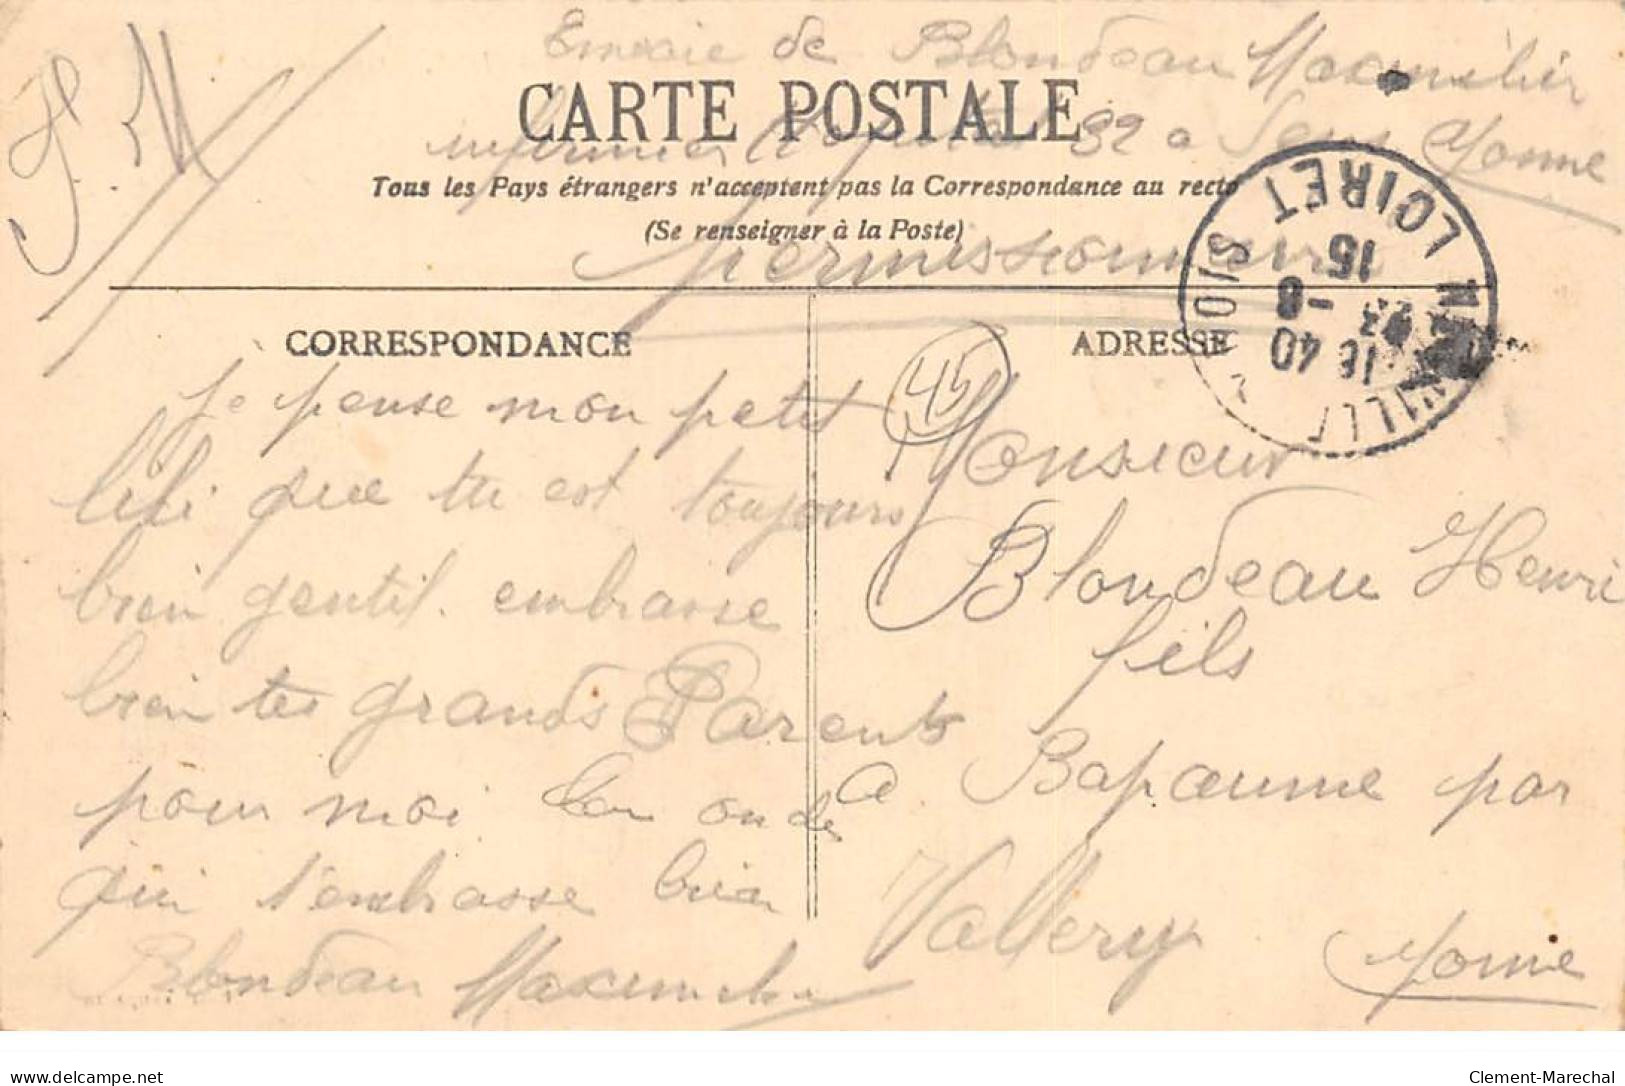 F. M
Envoie de Blondeau Maximilien
CARTE POSTALE
infirmier hopital 32 a Sens Yonne
Tous les Pays étrangers n'acceptent pas la Correspondance au recto
(Se renseigner à la Poste)
permissionnaire
LOIRET
15
-8
16 40
CORRESPONDANCE
je pense mon petit
lili que tu est toujours
bien gentil. embrasse
bien tes grands Parents
pour moi ton oncle
qui t'embrasse bien
Blondeau Maximilien
ADRESSE
45
Monsieur
Blondeau Henri
fils
a Bapaume par
Vallery
Yonne
delcampe.net
Clement-Marechal